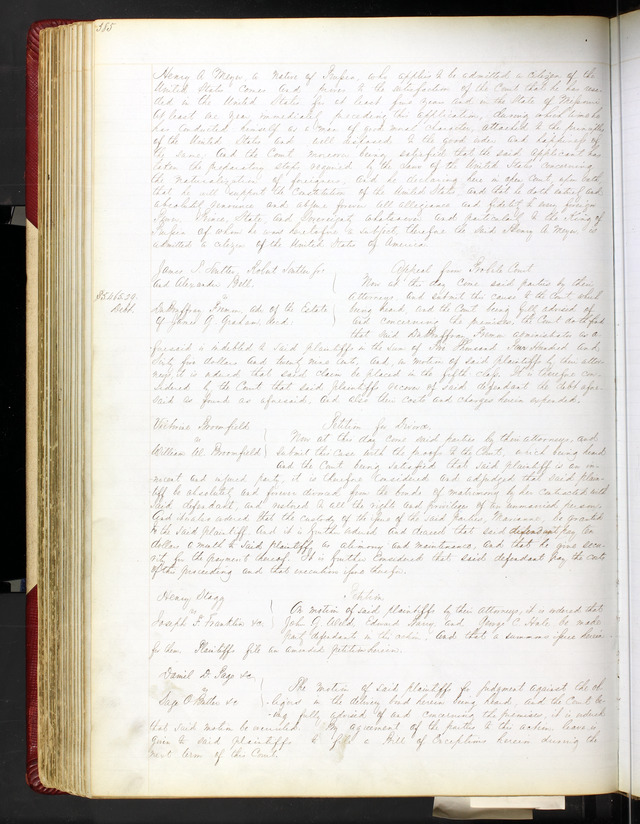 385
Henry A Meyer a Native of Prussia, who applies to be admitted a citizen of the
United States comes and proves to the satisfaction of the Court that he has resi
ded in the United States for at least five years and in the State of Missouri
at least one year immediately preceding this application, during which time he
has conducted himself as a man of good moral character, attached to the principles
of the United States and well disposed to the good order and happiness of
the same, and the Court moreover being satisfied that the said applicant has
taken the preparatory oaths required by the laws of the United States concerning
the naturalization of foreigners and he declaring here in open Court, upon oath
that he will support the Constitution of the United States, and that he doth entirely and
absolutely renounce and abjure forever all allegiance and fidelity to every foreign
Power, Prince, State, and Sovereignty whatsoever and particularly to the King of
Prussia of whom he was heretofore a subject, therefore the said Henry A Meyer is
admitted a citizen of the United States of America.
James S Robert
and Alexander Appeal from Probate Court
Now at this day come said parties by their
$5465.20. attorneys, and submit this cause to the Court, which
Debt. adr. of the Estate being heard, and the Court being fully advised of
of James G. Graham, decd. and concerning the premises, the Court doth find
that said administrator as a
foresaid is indebted to said plaintiffs in the sum of Thousand Four Hundred and
Sixty five dollars and twenty cents, and, on motion of said plaintiffs by their attor
neys, it is ordered that said claim be placed in the fifth class. It is therefore con
sidered by the Court that said plaintiffs recover of said defendant the debt afore
said as found as aforesaid, and also their costs and charges herein expended.
Bromfield Petition for Divorce.
vs Now at this day come said parties by their attorneys, and
William W. Bromfield submit this case with the proofs to the Court, which being heard
and the Court being satisfied that said plaintiff is an in
nocent and injured party, it is therefore considered and adjudged that said plain
tiff be absolutely and forever divorced from the bonds of matrimony by her contracted with
said defendant, and restored to all the rights and privileges of an unmarried person.
And it is also ordered that the custody of the of the said parties, Marianne, be granted
to the said plaintiff. And it is further ordered and decreed that said defendant pay
dollars a month to said plaintiff as alimony and maintenance, and that he give secu
rity for the payment thereof. It is further considered that said defendant pay the costs
of this proceeding and that execution issue therefor.
Henry Stagg Petition
vs On motion of said plaintiffs by their attorneys, it is ordered that
Joseph F. Franklin &c John G. Edward and George C. be made
party defendants in the action, and that a summons issue herein
for them. Plaintiffs file an amended petition herein.
Daniel D. Page &c.
vs The motion of said plaintiffs for judgment against the ob
&c ligors in the delivery bond herein being heard, and the Court be
ing fully advised of and concerning the premises, it is ordered
that said motion be overruled. By agreement of the parties to this action, leave is
given to said plaintiffs to file a Bill of Exceptions herein during the
next term of this Court.